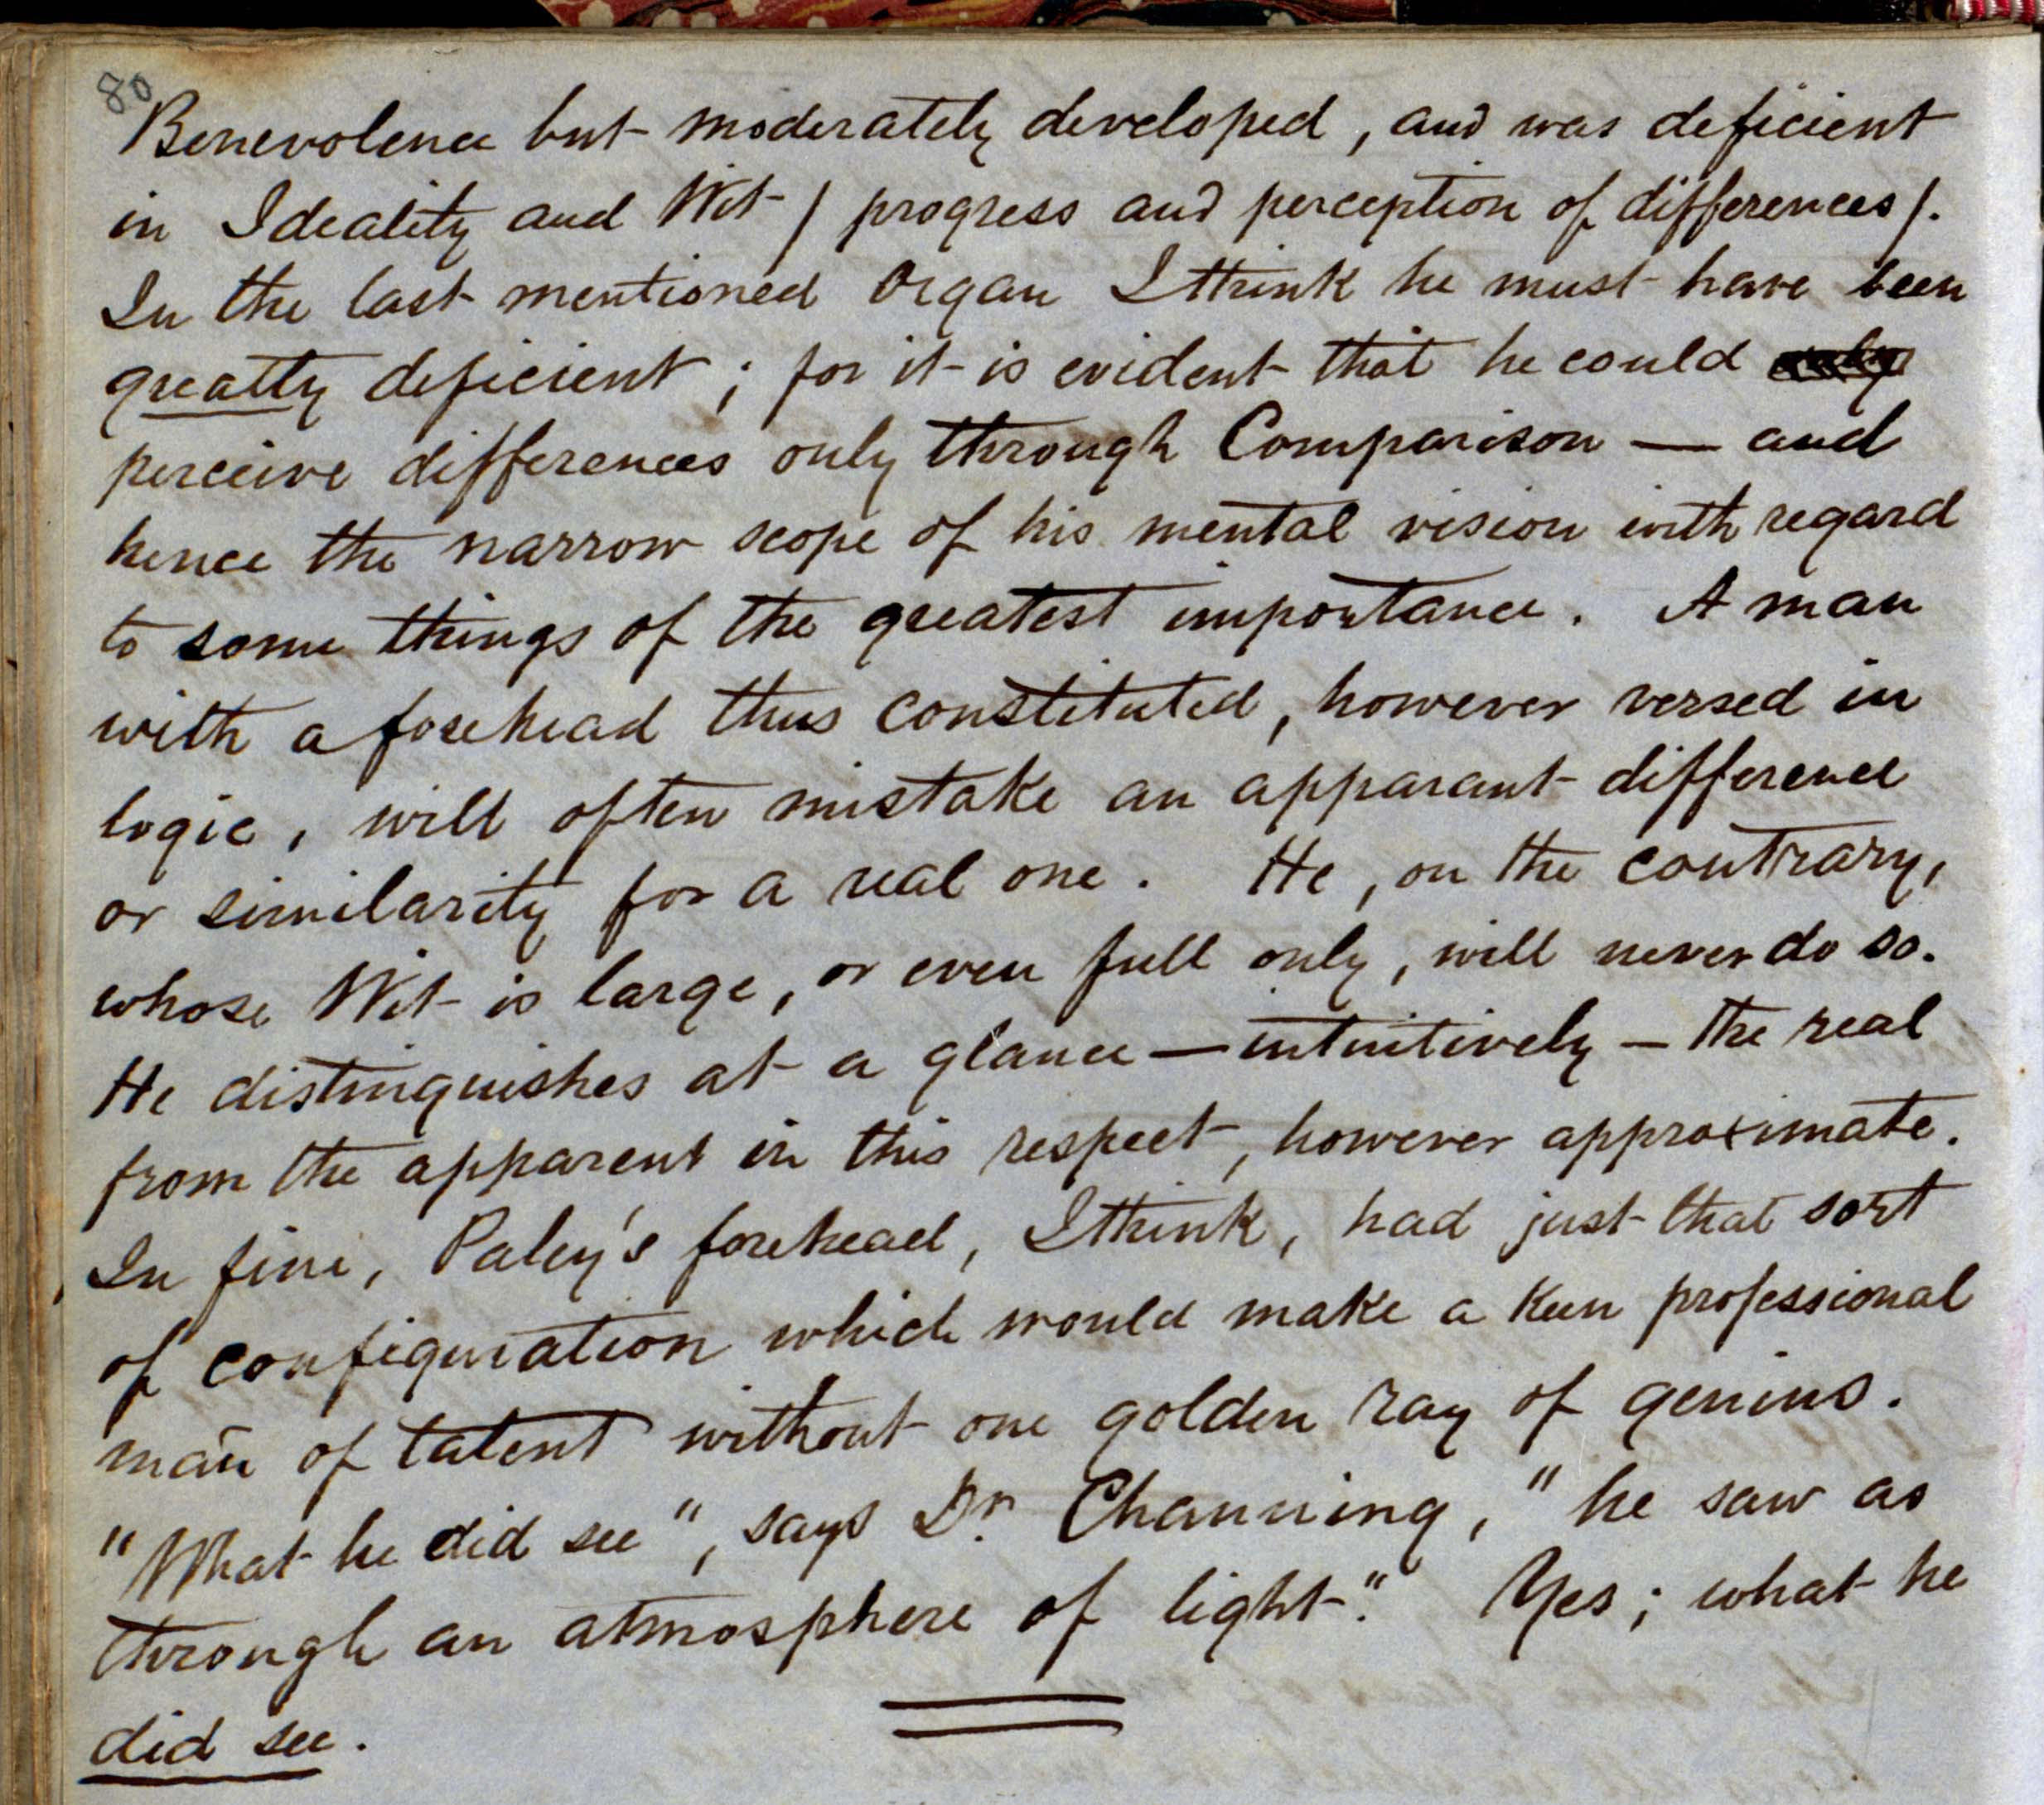 80
Benevolence but moderately developed, and was deficient
in Ideality and Wit / progress and perception of differences /.
In the last mentioned organ I think he must have been
greatly deficient; for it is evident that he could only
perceive differences only through Comparison — and
hence the narrow scope of his mental vision with regard
to some things of the greatest importance. A man
with a forehead thus constituted, however versed in
logic, will often mistake an apparant difference
or similarity for a real one. He, on the contrary,
whose Wit is large, or even full only, will never do so.
He distinguishes at a glance — intuitively — the real
from the apparent in this respect, however approximate.
In fine, Paley's forehead, I think, had just that sort
of configuration which would make a keen professional
man of talent without one golden ray of genius.
"What he did see", says Dr. Channing, "he saw as
through an atmosphere of light." Yes; what he
did see.